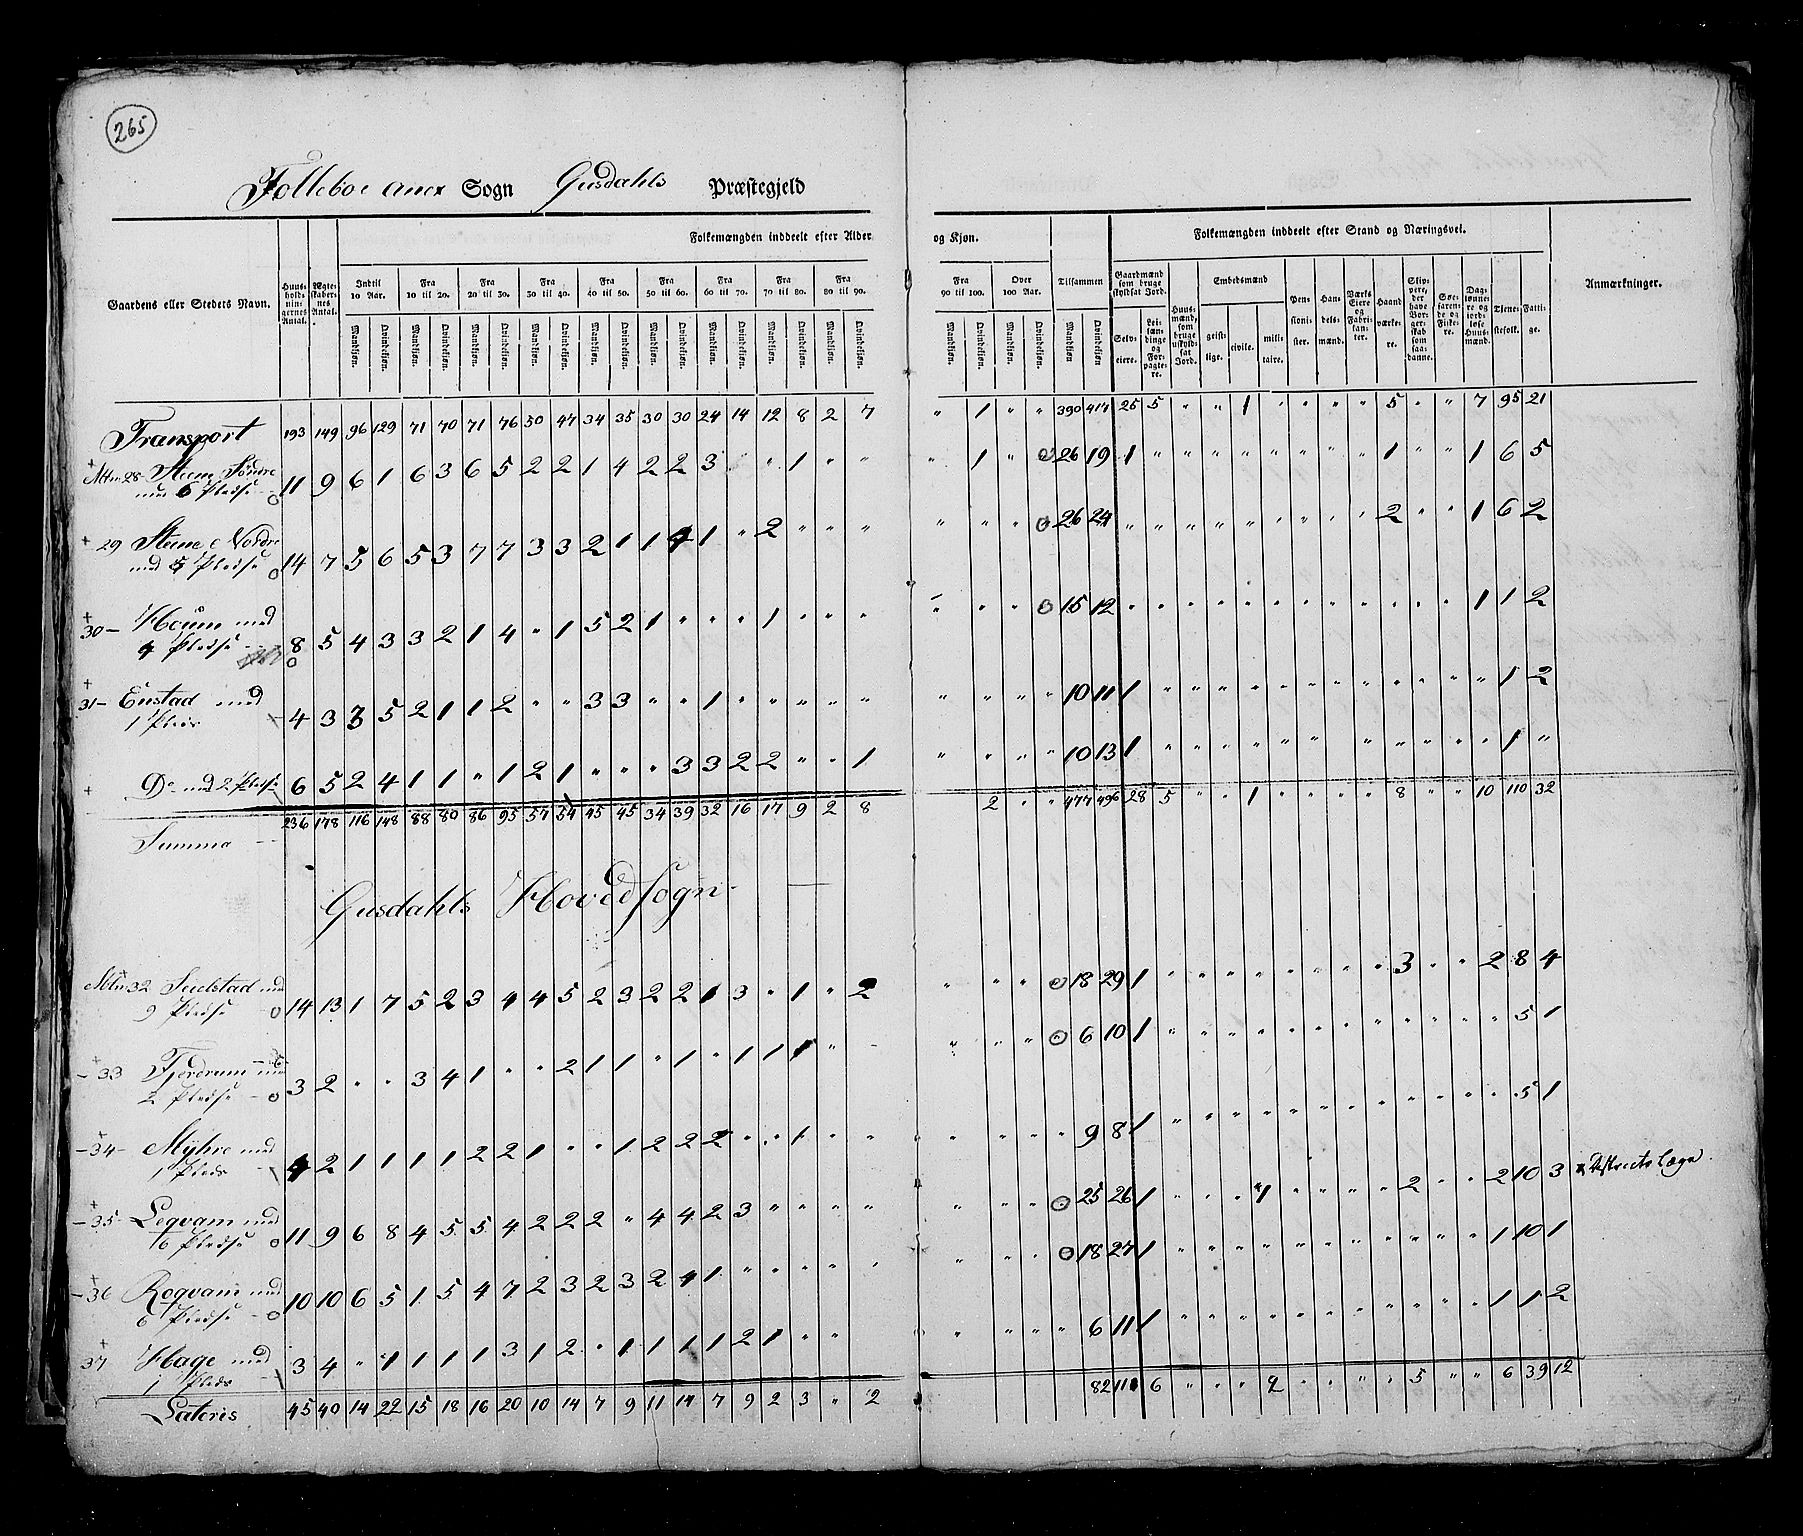 265
Folleboe anex Sogn Gusdahls Præstegjeld
Folkemængden inddeelt efter Alder og Kjøn. Folkemængden inddeelt efter Stand og Næringsvei.
Gaardens eller Stedets Navn. Huusholdningernes Antal. Ægteskabernes Antal. Indtil 10 Aar. Fra 10 til 20. Fra 20 til 30. Fra 30 til 40. Fra 40 til 50. Fra 50 til 60. Fra 60 til 70. Fra 70 til 80. Fra 80 til 90. Fra 90 til 100. Over 100 Aar. Tilsammen Gaardmænd som bruge skyldsat Jord. Huusmænd, som bruge uskyldsat Jord. Embedsmænd Pensionister. Handelsmænd. Værks Eiere og Fabrikanter. Haandværkere. Skippere, der have Borgerskab som saadanne. Søefarende og Fiskere. Daglønnere og jordløse Huusmænd. Tjenestefolk. Fattige. Anmærkninger.
Mandkjøn. Qvindekjøn. Mandkjøn. Qvindekjøn. Mandkjøn. Qvindekjøn. Mandkjøn. Qvindekjøn. Mandkjøn. Qvindekjøn. Mandkjøn. Qvindekjøn. Mandkjøn. Qvindekjøn. Mandkjøn. Qvindekjøn. Mandkjøn. Qvindekjøn. Mandkjøn. Qvindekjøn. Mandkjøn. Qvindekjøn. Mandkjøn Qvindekjøn Selveiere. Leilændinge og Forpagtere. geistlige. civile. militaire.
Transport 193 149 96 129 71 70 71 76 50 47 34 35 30 30 24 14 12 8 2 7 " 1 " " 390 417 25 5 " " 1 " " " " 5 " " 7 95 21
Mtr 28 - Steen Søndre
med 6 Pladse 11 9 6 1 6 3 6 5 2 2 1 4 2 2 3 " 1 " " " 1 " 26 19 1 " " " " " " " " 1 " " 1 6 5
29 Steene Nordre
med 5 Pladse 14 7 5 6 5 3 7 7 3 3 2 1 1 4 1 " 2 " " " " " " 26 24 " " " " " " " " " 2 " " 1 6 2
30 - Houm med
4 Pladse 8 5 4 3 3 2 1 4 " 1 5 2 1 " " " 1 " " " " " " 15 12 " " " " " " " " " " " " 1 1 2
31 - Enstad med
1 Plads 4 3 3 5 2 1 1 2 " " 3 3 " " 1 " " " " " " " " " 10 11 1 " " " " " " " " " " " " 1 2
Do med 2 Pladse 6 5 2 4 1 1 " 1 2 1 " " " 3 3 2 2 " " 1 " " " " 10 13 1 " " " " " " " " " " " 1 "
Summa 236 178 116 148 88 80 86 95 57 54 45 45 34 39 32 16 17 9 2 8 2 " " 477 496 28 5 " " 1 " " " " 8 " " 10 110 32
Gusdahls Hovedsogn
Mtr 32 Suelstad med
9 Pladse 14 13 1 7 5 2 3 4 4 5 2 3 2 2 1 3 " 1 " 2 " " " 18 29 1 " " " " " " " " 3 " " 2 8 4
33 Fjordrum med
2 Pladse 3 2 " " 3 4 1 " " 2 1 1 " 1 " 1 1 1 " " " " " 6 10 1 " " " " " " " " " " " " 5 1
34 - Myhre med
1 Plads 4 2 1 1 1 1 2 2 1 " " 1 2 2 2 " " 1 " " " " " " 9 8 1 " " " " " " " " " " " " 5 1
35 - Leqvam med
6 Pladse 11 9 6 8 4 5 5 4 2 2 2 " 4 4 2 3 " " " " " " " 25 26 1 " " " 1 " " " " 2 " " 2 10 3 x Distrects Læge
36 Roqvam med
6 Pladse 10 10 6 5 1 5 4 7 2 3 2 3 2 4 1 " " " " " " " " 18 27 1 " " " " " " " " " " " 1 10 1
37 Hage med
1 Plads 3 4 " 1 1 1 1 3 1 2 " 1 1 1 1 2 1 " " " " " " 6 11 1 " " " " " " " " " " " 1 1 2
Lateris 45 40 14 22 15 18 16 20 10 14 7 9 11 14 7 9 2 3 " 2 82 111 6 " " " 2 " " " " 5 " " 6 39 12